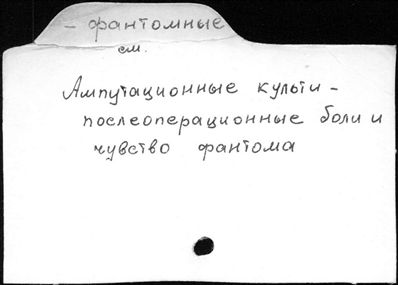 – фантомные
см.
Ампутационные культи –
послеоперационные боли и
чувство фантома